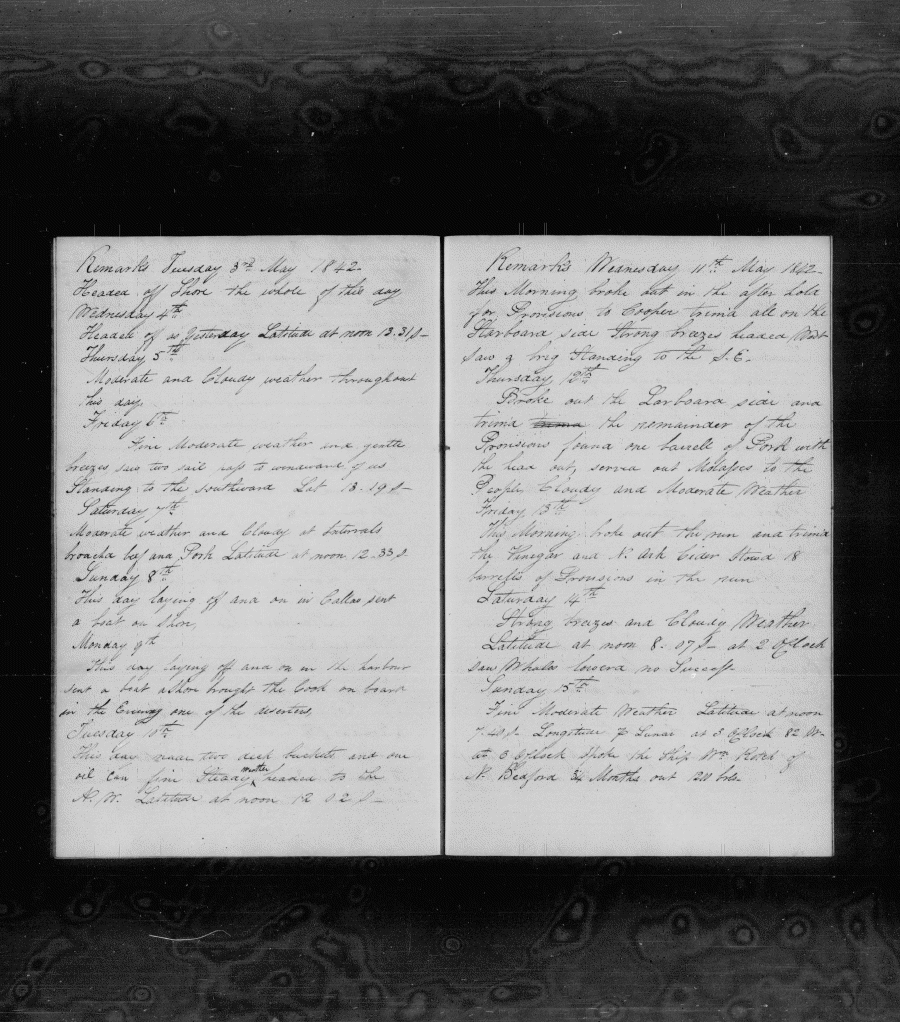 Remarks Tuesday 3rd May 1842
Headed off Shore the whole of this day
Wednesday 4th
Headed of as Yesterday Latitude at noon 13.31 S
Thursday 5th
Moderate and Cloudy weather throughout
this day
Friday 6th
Fine Moderate weather and gentle
breezes saw two sail pass to windward of us
Standing to the southward Lat 13-19 S
Saturday 7th
Moderate weather and Cloudy at Intervals
broached beef and Pork Latitude at noon 12-33 S
Sunday 8th
This day laying off and on in Callao sent
a boat on Shore
Monday 9th
This day laying off and on in the harbour
sent a boat ashore brought the Cook on board
in the Evening one of the deserters
Tuesday 10th
This day made two deck buckets and one
oil Can fine Steady weather headed to the
N.W. Latitude at noon 12 02 S
Remarks Wednesday 11th May 1842
This Morning broke out in the after hold
for Provisions to Cooper trimd all on the
Starboard side Strong breezes headed West
Saw a brig Standing to the S.E.
Thursday 12th
Broke out the Larboard side and
trimd the remainder of the
Provisions found one barrell of Pork with
the head out, served out Molasses to the
People Cloudy and Moderate Weather
Friday 13th
This Morning broke out the run and trimd
the Vinegar and Cider Stowd 18
barrells of Provisions in the run
Saturday 14th
Strong breezes and Cloudy Weather
Latitude at noon 8-07 S at 2 OClock
Saw Whales lowerd no Success
Sunday 15th
Fine Moderate Weather Latitude at noon
7.40 S Longitude p Lunar at 3 OClock 82 W
at 3 OClock Spoke the Ship Wm Rotch of
N. Bedford Months out bbls